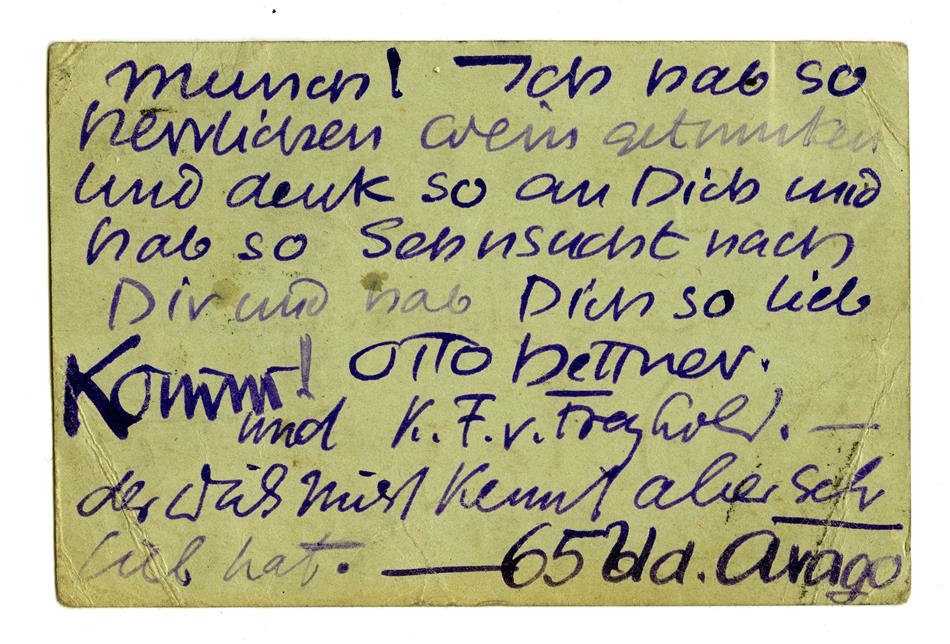 Munch! Ich hab so
herrlichen Wein getrunken
und denk so an Dich und
hab so Sehnsucht nach
Dir und hab Dich so lieb
Komm! Otto Hettner.
und K. F. v. Freyhold. —
der Dich nicht kennt aber sehr
lieb hat. — 65 Bld. Arago